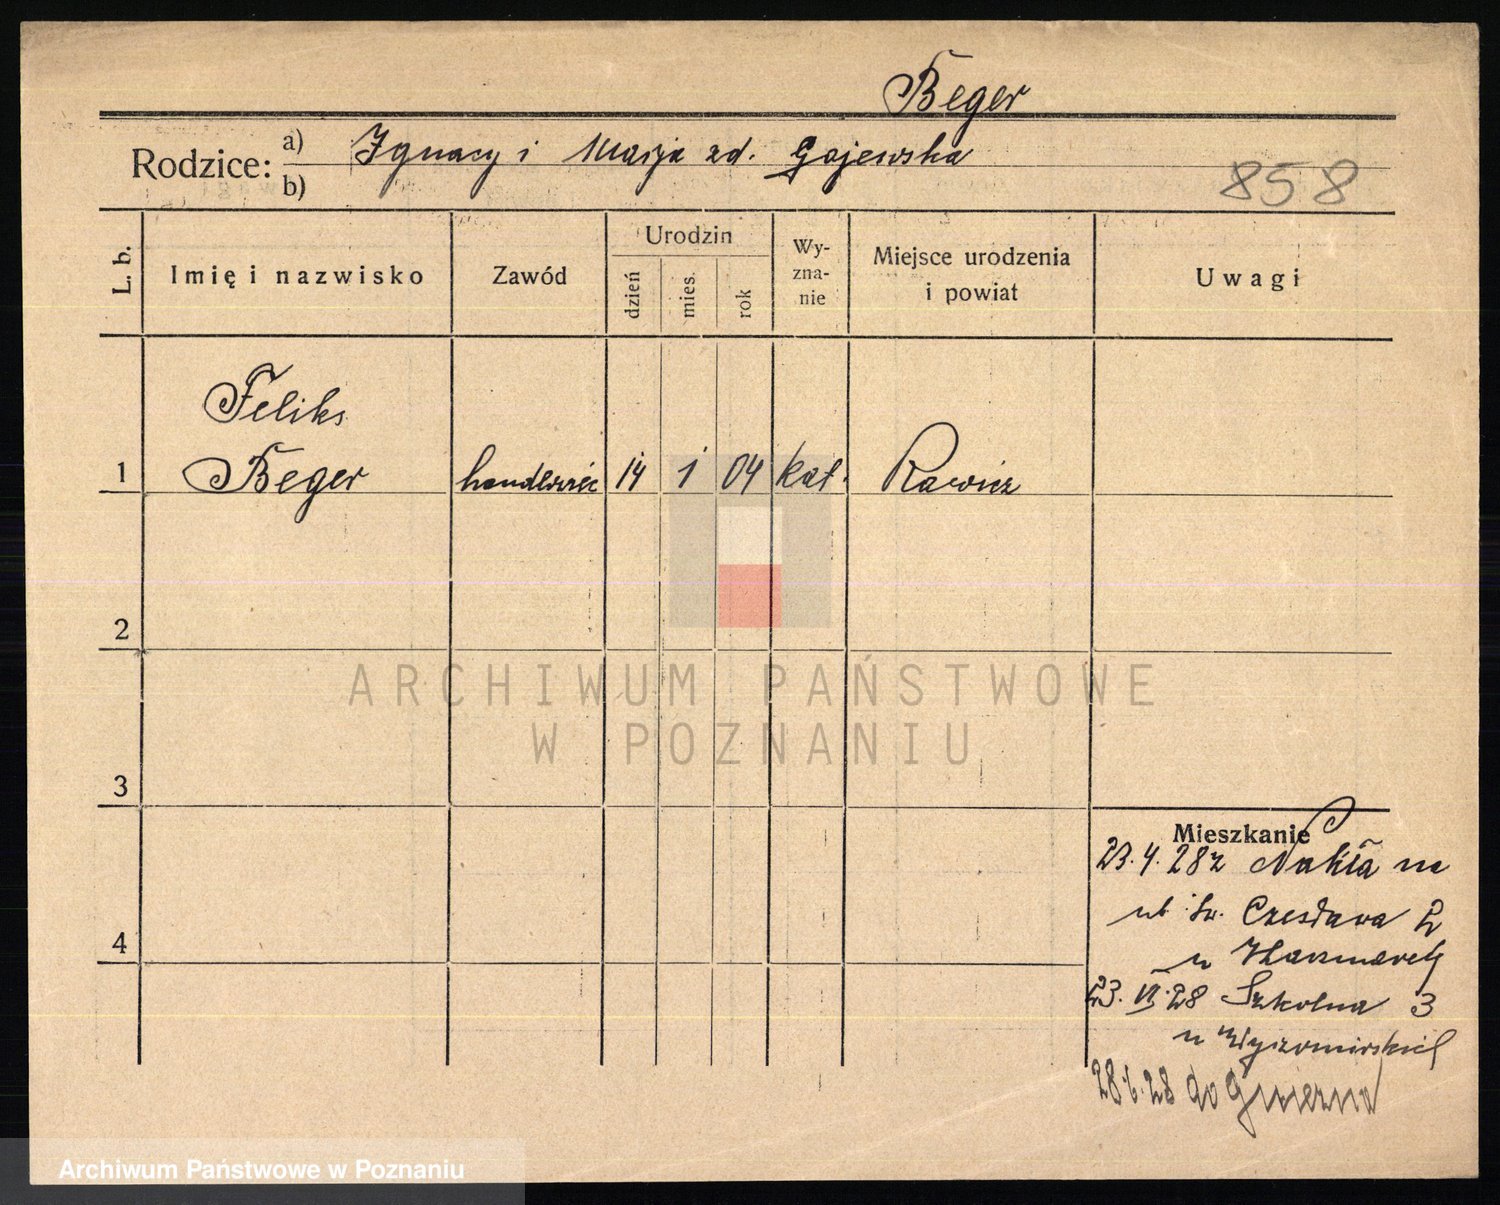 Beger
Rodzice: a) Ignacy i Marja zd. Gajewska
b)
858
L. b.
Imię i nazwisko
Zawód
Urodzin
dzień
mies.
rok
Wy-
zna-
nie
Miejsce urodzenia
i powiat
Uwagi
Feliks
1 Beger handlowiec 14 1 04 kat. Rawicz
2
3
4
ARCHIWUM PAŃSTWOWE
W POZNANIU
Mieszkanie
23.4.28 z Nakła na
ul. Św. Czesława 2
u
23. VI. 28 Szkolna 3
u
28.6.28 do Gniezna
Archiwum Państwowe w Poznaniu